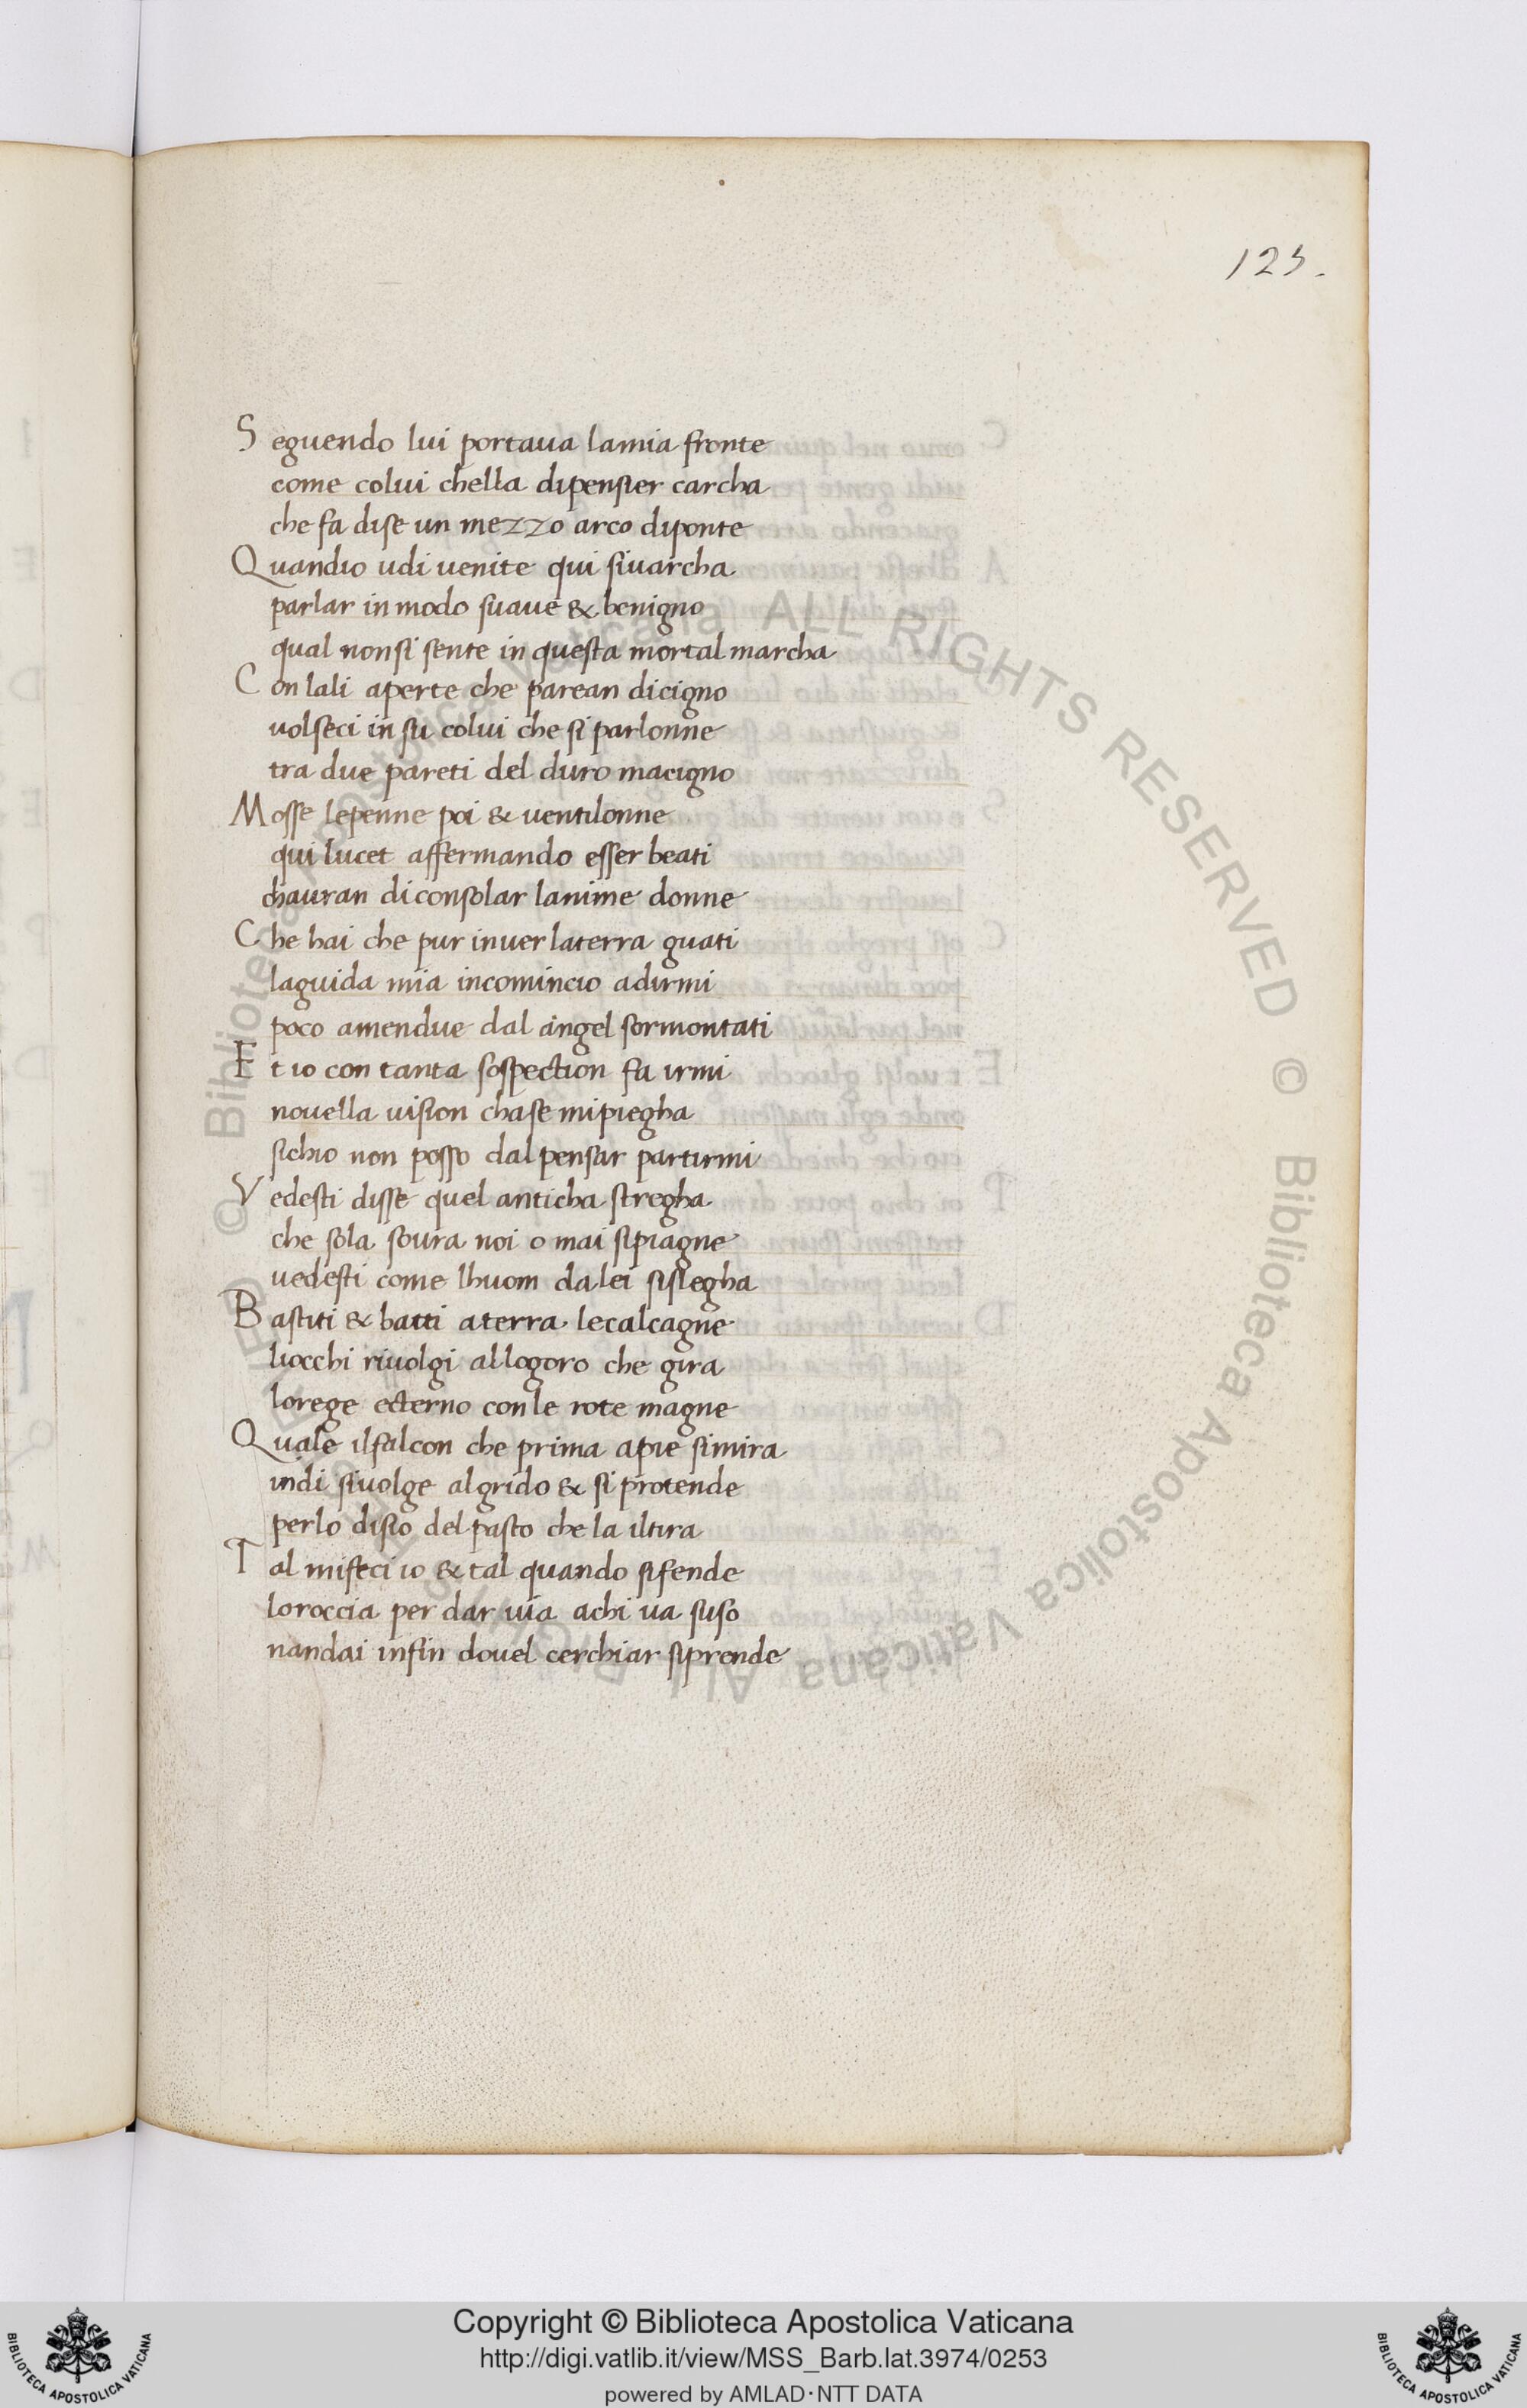 123.
Seguendo lui portaua lamia fronte
come colui chella dipensier carcha
che fa dise un mezzo arco diponte
Quandio udi uenite qui siuarcha
parlar in modo suaue & benigno
qual nonsi sente in questa mortal marcha
Con lali aperte che parean dicigno
uolseci in su colui che si parlonne
tra due pareti del duro macigno
Mosse lepenne poi & uentilonne
qui lucet affermando esser beati
chauran di consolar lanime donne
Che hai che pur inuer laterra guati
laguida mia incomincio adirmi
poco amendue dal angel sormontati
Et io con tanta sospection fa irmi
nouella uision chase mipiegha
sichio non posso dal pensar partirmi
Vedesti disse quel anticha stregha
che sola soura noi o mai sipiagne
uedesti come lhuom da lei sislegha
Bastiti & batti aterra lecalcagne
liocchi riuolgi allogoro che gira
lorege ecterno conle rote magne
Quale ilfalcon che prima apie simira
indi siuolge algrido & si protende
perlo disio del pasto che la iltira
Tal mifeci io & tal quando sifende
laroccia per dar uia achi ua suso
nandai infin douel cerchiar siprende
© Biblioteca Apostolica Vaticana ALL RIGHTS RESERVED © Biblioteca Apostolica Vaticana ALL RIGHTS RESERVED
Copyright © Biblioteca Apostolica Vaticana
http://digi.vatlib.it/view/MSS_Barb.lat.3974/0253
powered by AMLAD·NTT DATA
BIBLIOTECA APOSTOLICA VATICANA
BIBLIOTECA APOSTOLICA VATICANA